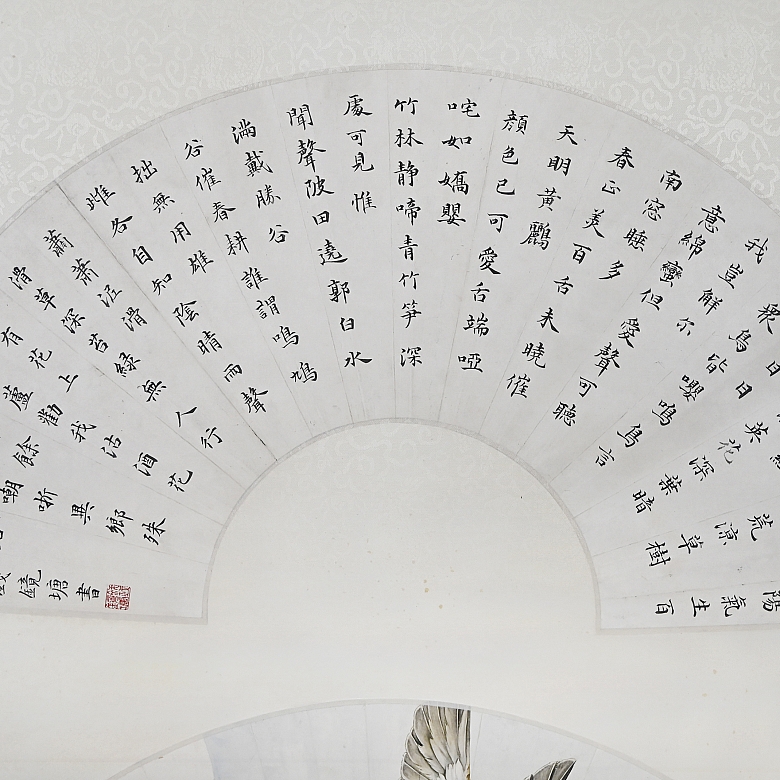 陽氣生百
荒涼草樹
英花深葉暗
日
眾鳥皆嚶鳴鳥言
我豈解尔
意綿蠻但愛聲可聽
南窓睡多
春正美百舌未曉催
天明黃鸝
顏色已可愛舌端啞
咤如嬌嬰
竹林静啼青竹笋深
處可見惟
聞聲陂田遶郭白水
滿戴勝谷
谷催春耕誰謂鳴鳩
拙無用雄
雌各自知陰晴雨聲
蕭蕭泥滑
滑草深苔緑無人行
有花上
蘆勸我沽酒花
餘
嘲哳異鄉殊
錢鏡塘書